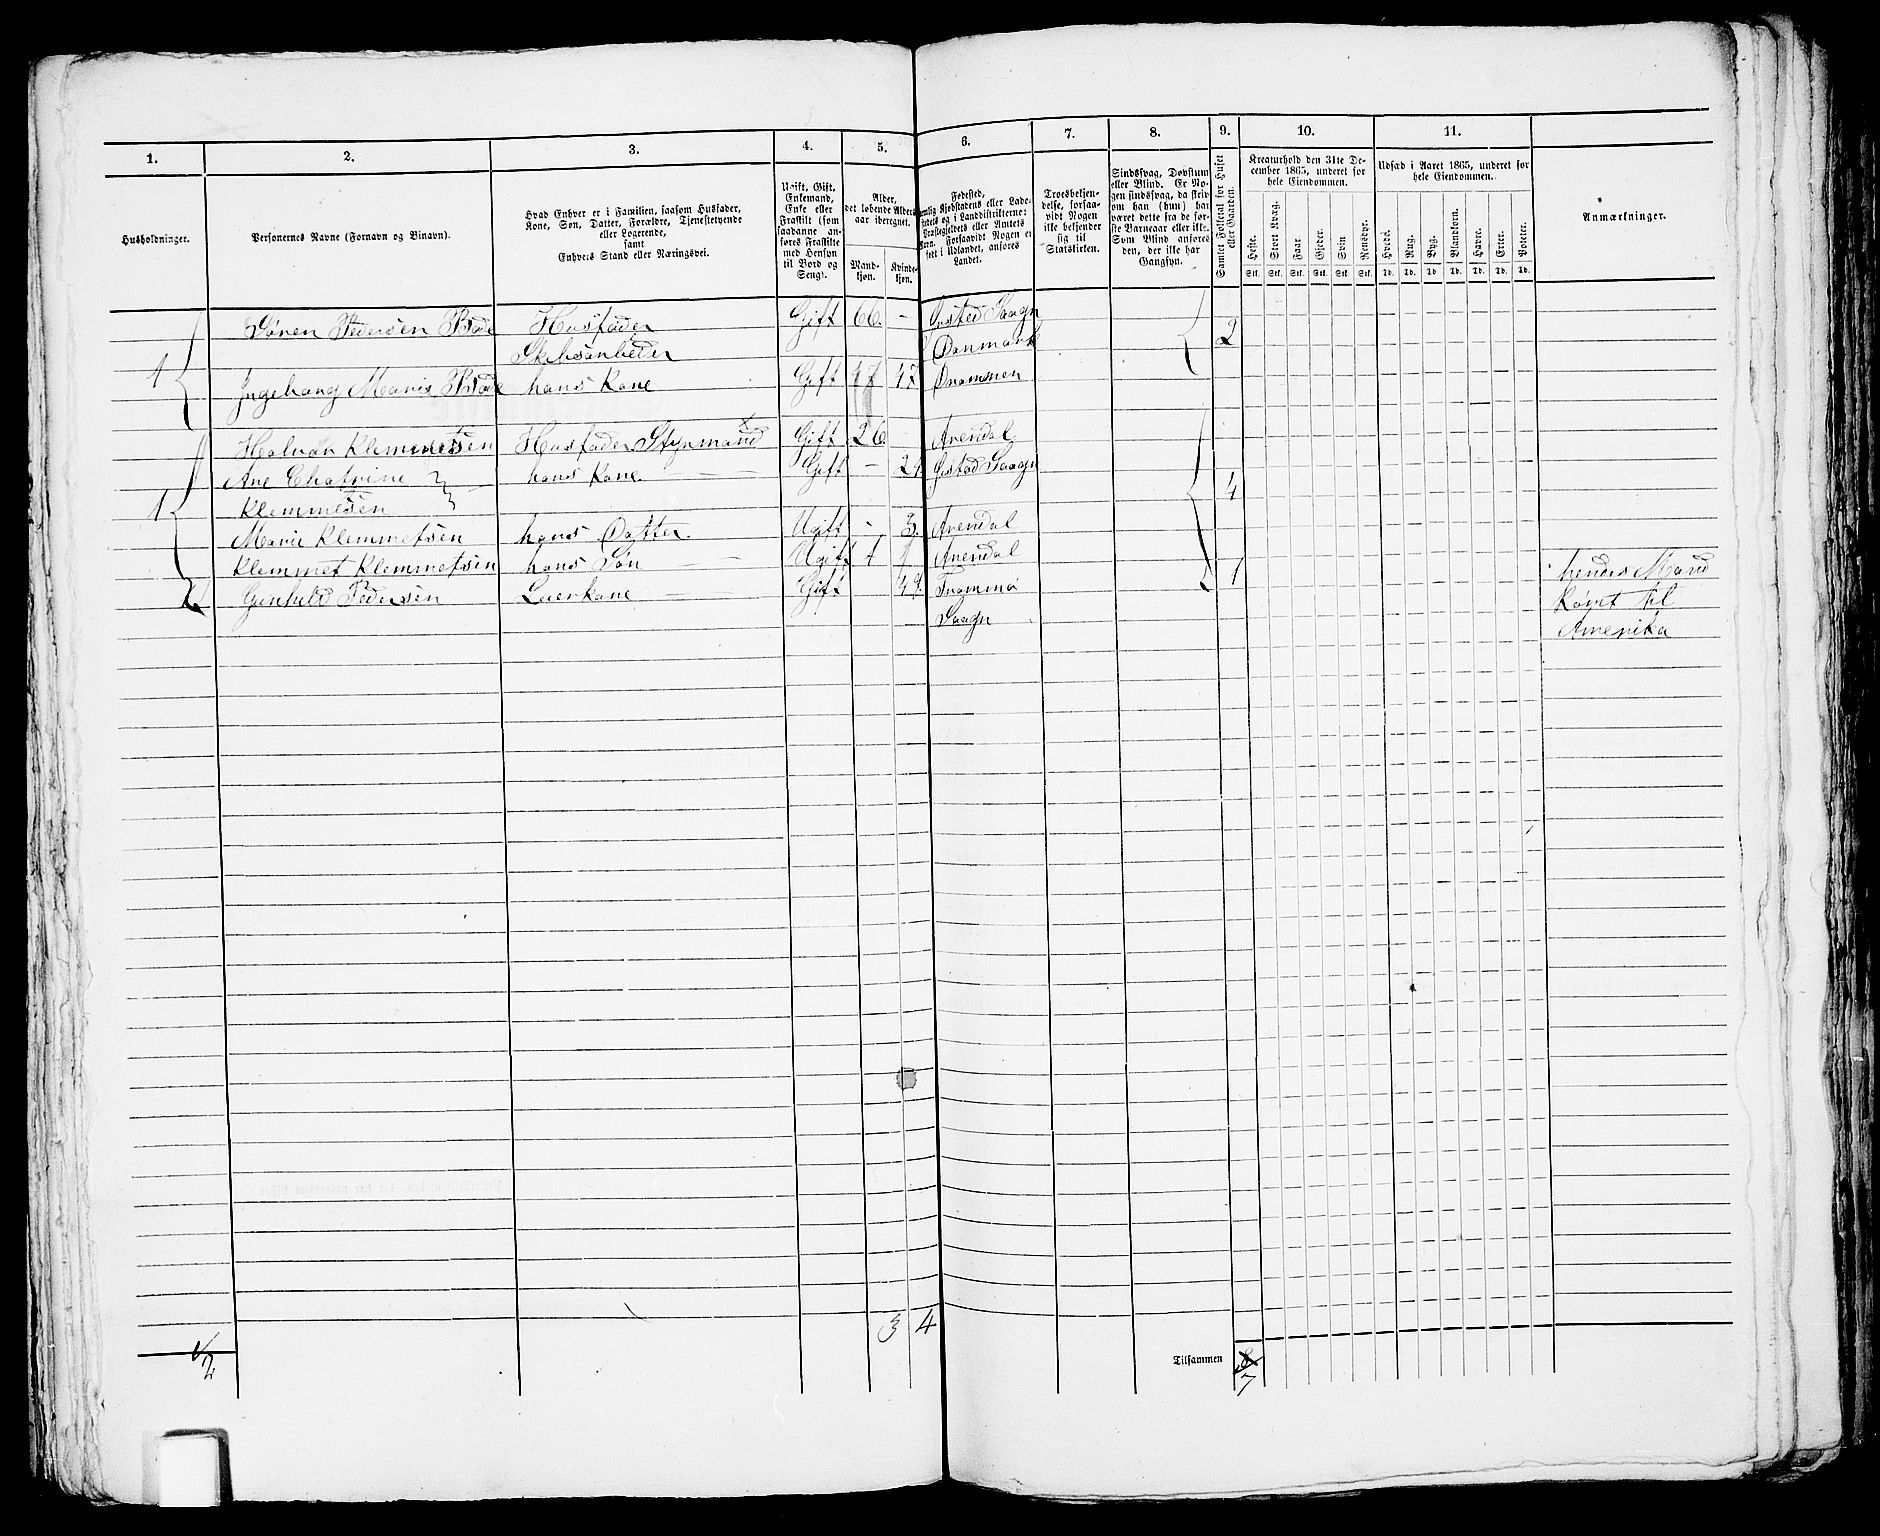 1. 2. 3. 4. 5. 6. 7. 8. 9. 10. 11.
Husholdninger.
Personernes Navne (Fornavn og Binavn).
Hvad Enhver er i Familien, saasom Husfader,
Kone, Søn, Datter, Forældre, Tjenestetyende
eller Logerende,
samt
Enhvers Stand eller Næringsvei.
Ugift, Gift,
Enkemand,
Enke eller
Fraskilt (som
saadanne an-
føres Fraskilte
med Hensyn
til Bord og
Seng).
Alder,
det løbende Alders-
aar iberegnet.
Mand-
kjøn.
Kvinde-
kjøn.
Fødested,
Kjøbstadens eller Lade-
og i Landdistrikterne:
Præstegjeldets eller Amtets
Navn. Forsaavidt Nogen er
født i Udlandet, anføres
Landet.
Troesbekjen-
delse, forsaa-
vidt Nogen
ikke bekjender
sig til
Statskirken.
Sindssvag, Døvstum
eller Blind. Er No-
gen sindssvag, da skriv
om han (hun) har
været dette fra de før-
ste Barneaar eller ikke.
Som Blind anføres
den, der ikke har
Gangsyn.
Samlet Folketal for Huset
eller Gaarden.
Kreaturhold den 31te De-
cember 1865, underet for
hele Eiendommen.
Heste. Stort Kvæg. Faar. Gjeder. Svin. Rensdyr.
Stk. Stk. Stk. Stk. Stk. Stk.
Udsæd i Aaret 1865, underet for
hele Eiendommen.
Hvede. Rug. Byg. Blandkorn. Havre. Erter. Poteter.
Td. Td. Td. Td. Td. Td. Td.
Anmærkninger.
Søren Pedersen Husfader Gift 66. - Danmark 2
1 Ingeborg Marie hans Kone Gift 47 47 Drammen
Halvor Klemmetsen Husfader Styrmand Gift 26. - Arendal
Ane Chatrine hans Kone. Gift - Sogn 4
1 Klemmetsen
Marie Klemmetsen hans Datter. Ugift - 3. Arendal
Klemmet Klemmetsen hans Søn Ugift 1 Arendal
Gunhild Pedersen Leierkone Gift 49. Trommø 1 hendes Mand
Sogn reist til
Amerika
3 4
2
Tilsammen 8
7